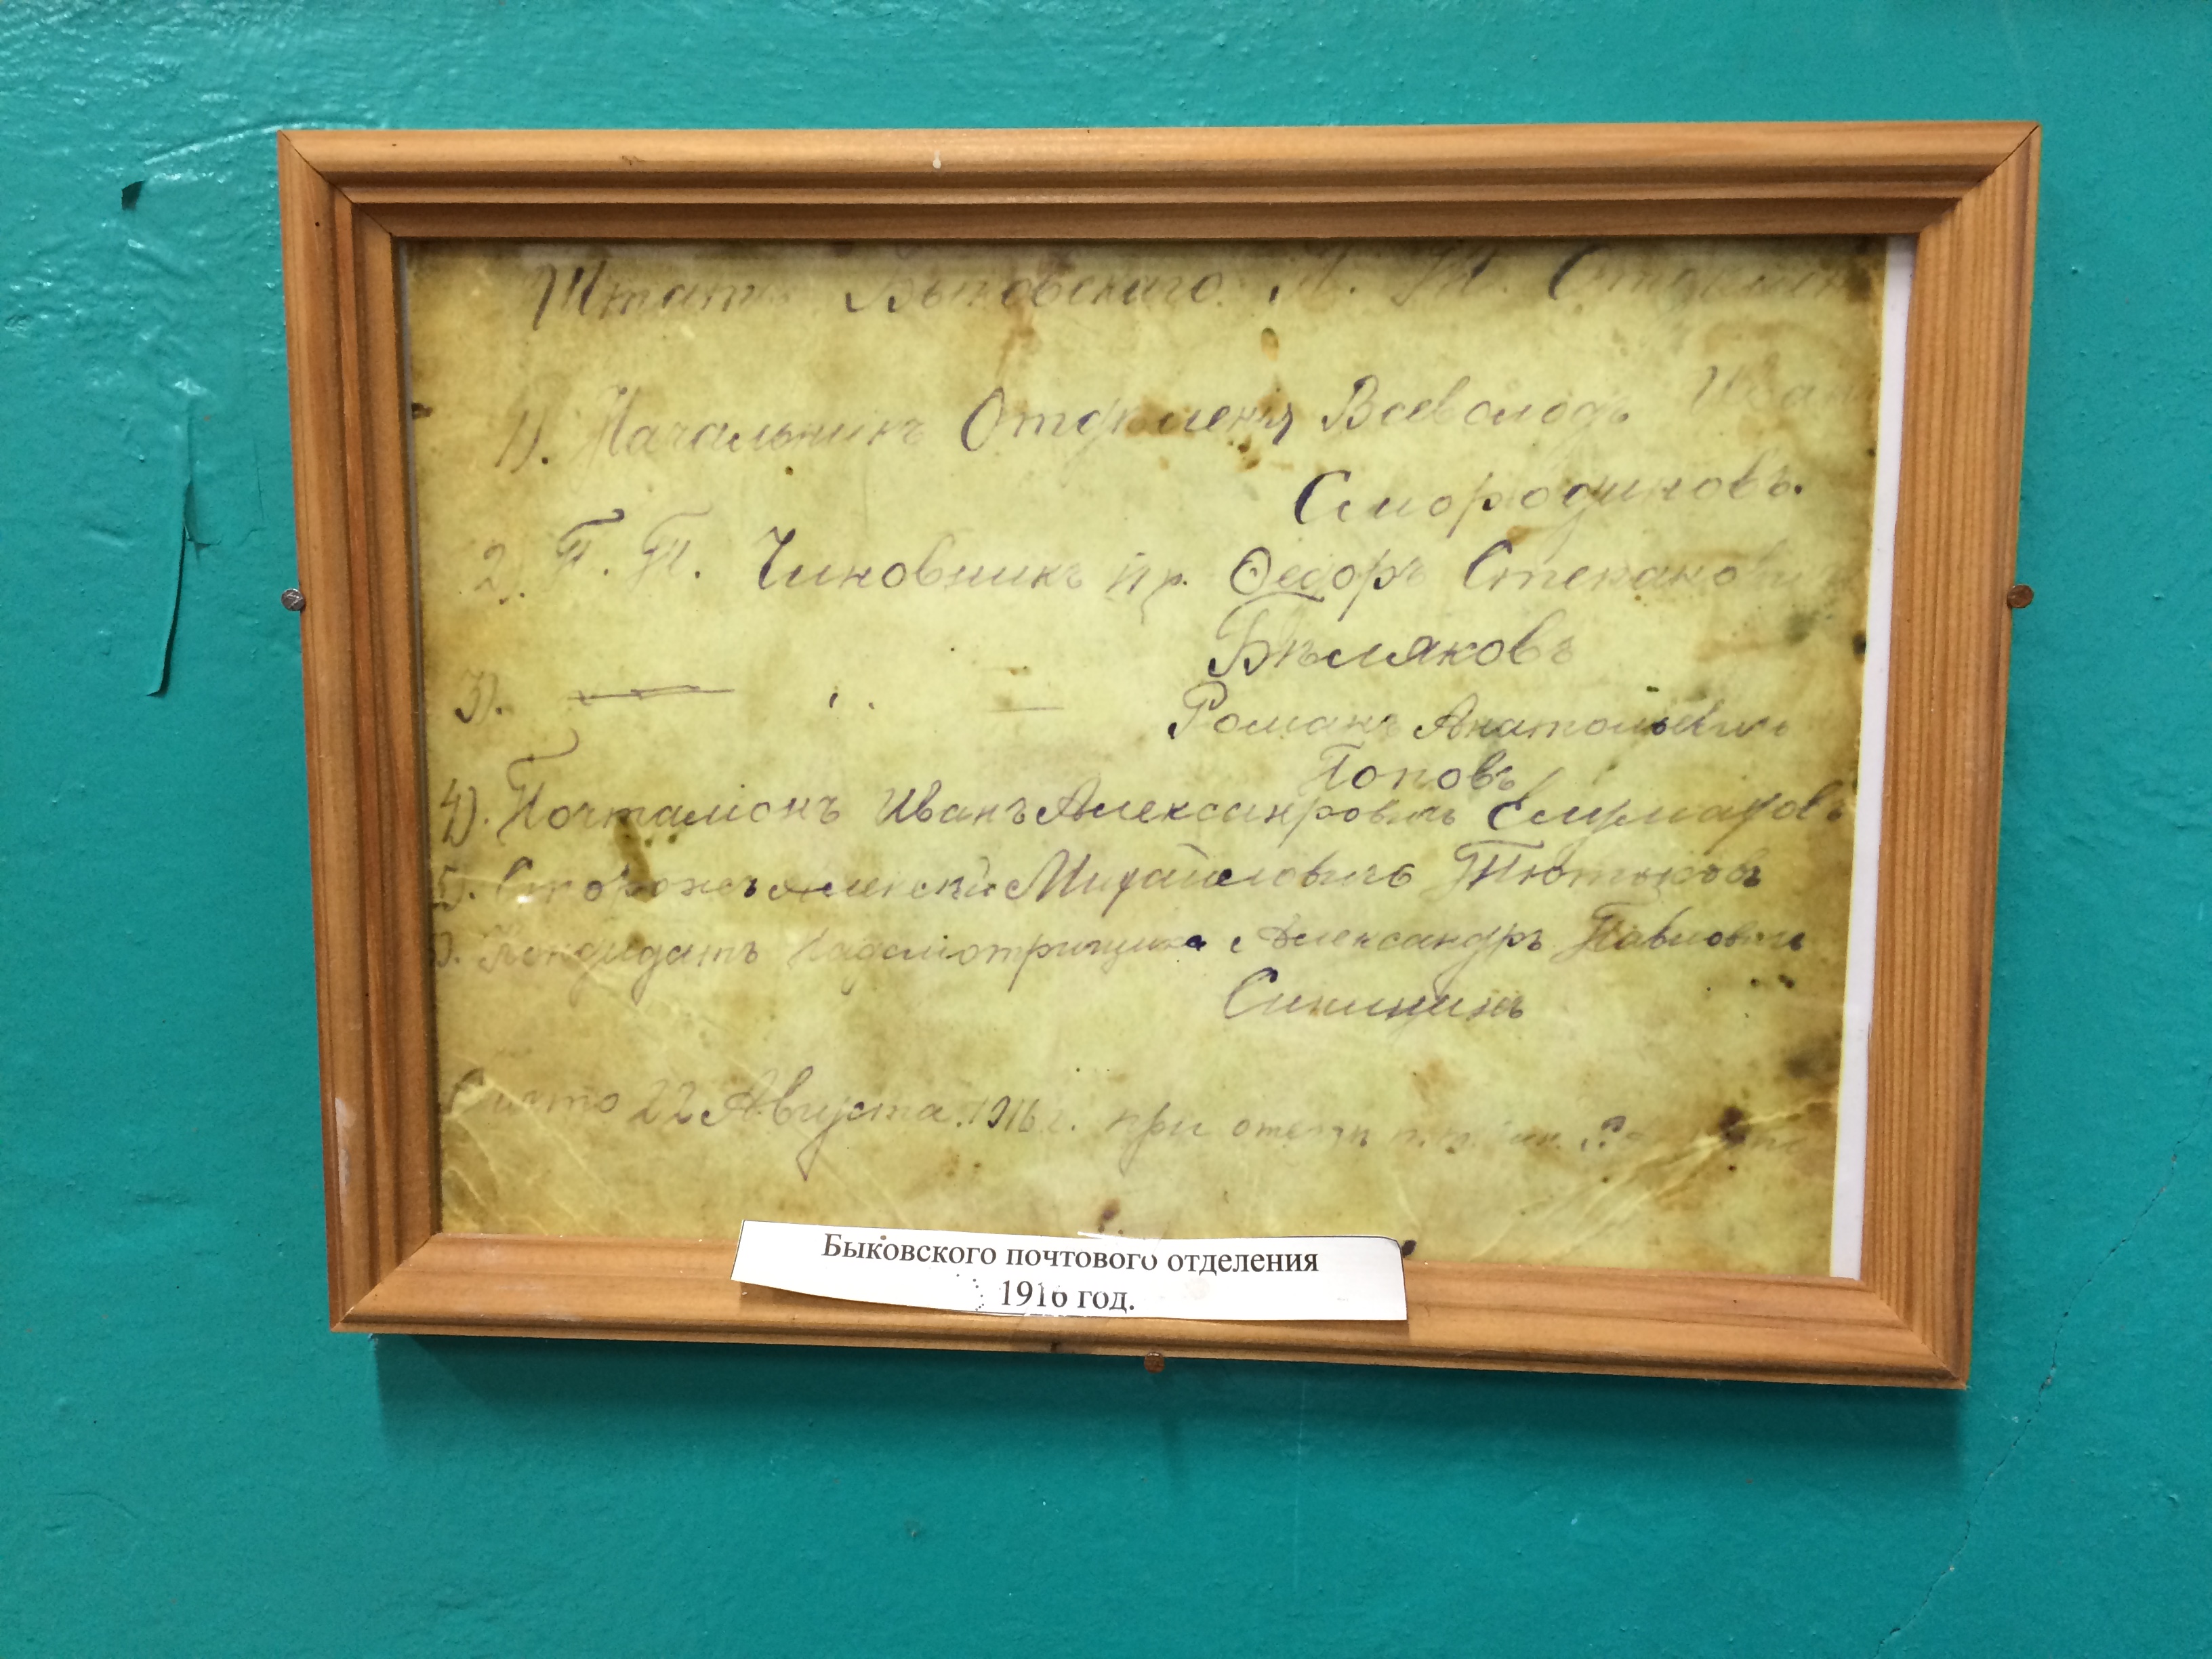 Штатъ Быковскаго П. Т. Отдѣлен
1). Начальникъ Отдѣленя Всеволодъ Иван
Смородиновъ.
2). П. Т. Чиновникъ Ѳедоръ Степанови
Бѣляковъ
3). — " —
Романъ Анатольевичъ
Поповъ
4). Почталіонъ Иванъ Александровичъ
5). Сторожъ Алексѣй Михайловичъ
Кандидатъ Надсмотрщика Александръ Павловичъ
22 Августа 1916 г. при
Быковского почтового отделения
1916 год.